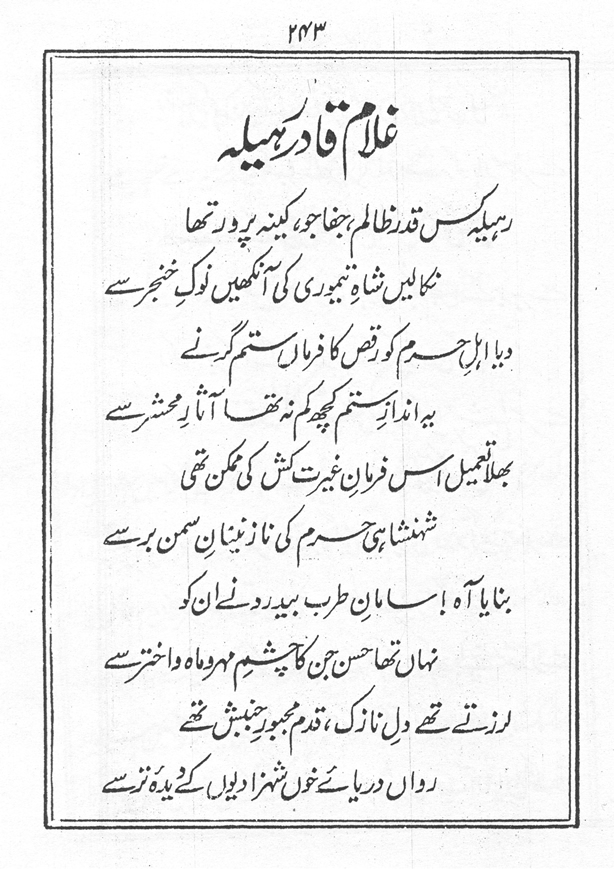 ۲۴۳
غلام قادر رہیلہ
رہیلہ کس قدر ظالم، جفا جو، کینہ پرور تھا
نکالیں شاہِ تیموری کی آنکھیں نوکِ خنجر سے
دیا اہلِ حرم کو رقص کا فرماں ستم گر نے
یہ اندازِ ستم کچھ کم نہ تھا آثارِ محشر سے
بھلا تعمیل اس فرمانِ غیرت کش کی ممکن تھی
شہنشاہی حرم کی نازنینانِ سمن بر سے
بنایا آہ! سامانِ طرب بیدرد نے ان کو
نہاں تھا حسن جن کا چشمِ مہر و ماہ و اختر سے
لرزتے تھے دلِ نازک، قدم مجبورِ جنبش تھے
رواں دریائے خوں شہزادیوں کے دیدۂ تر سے